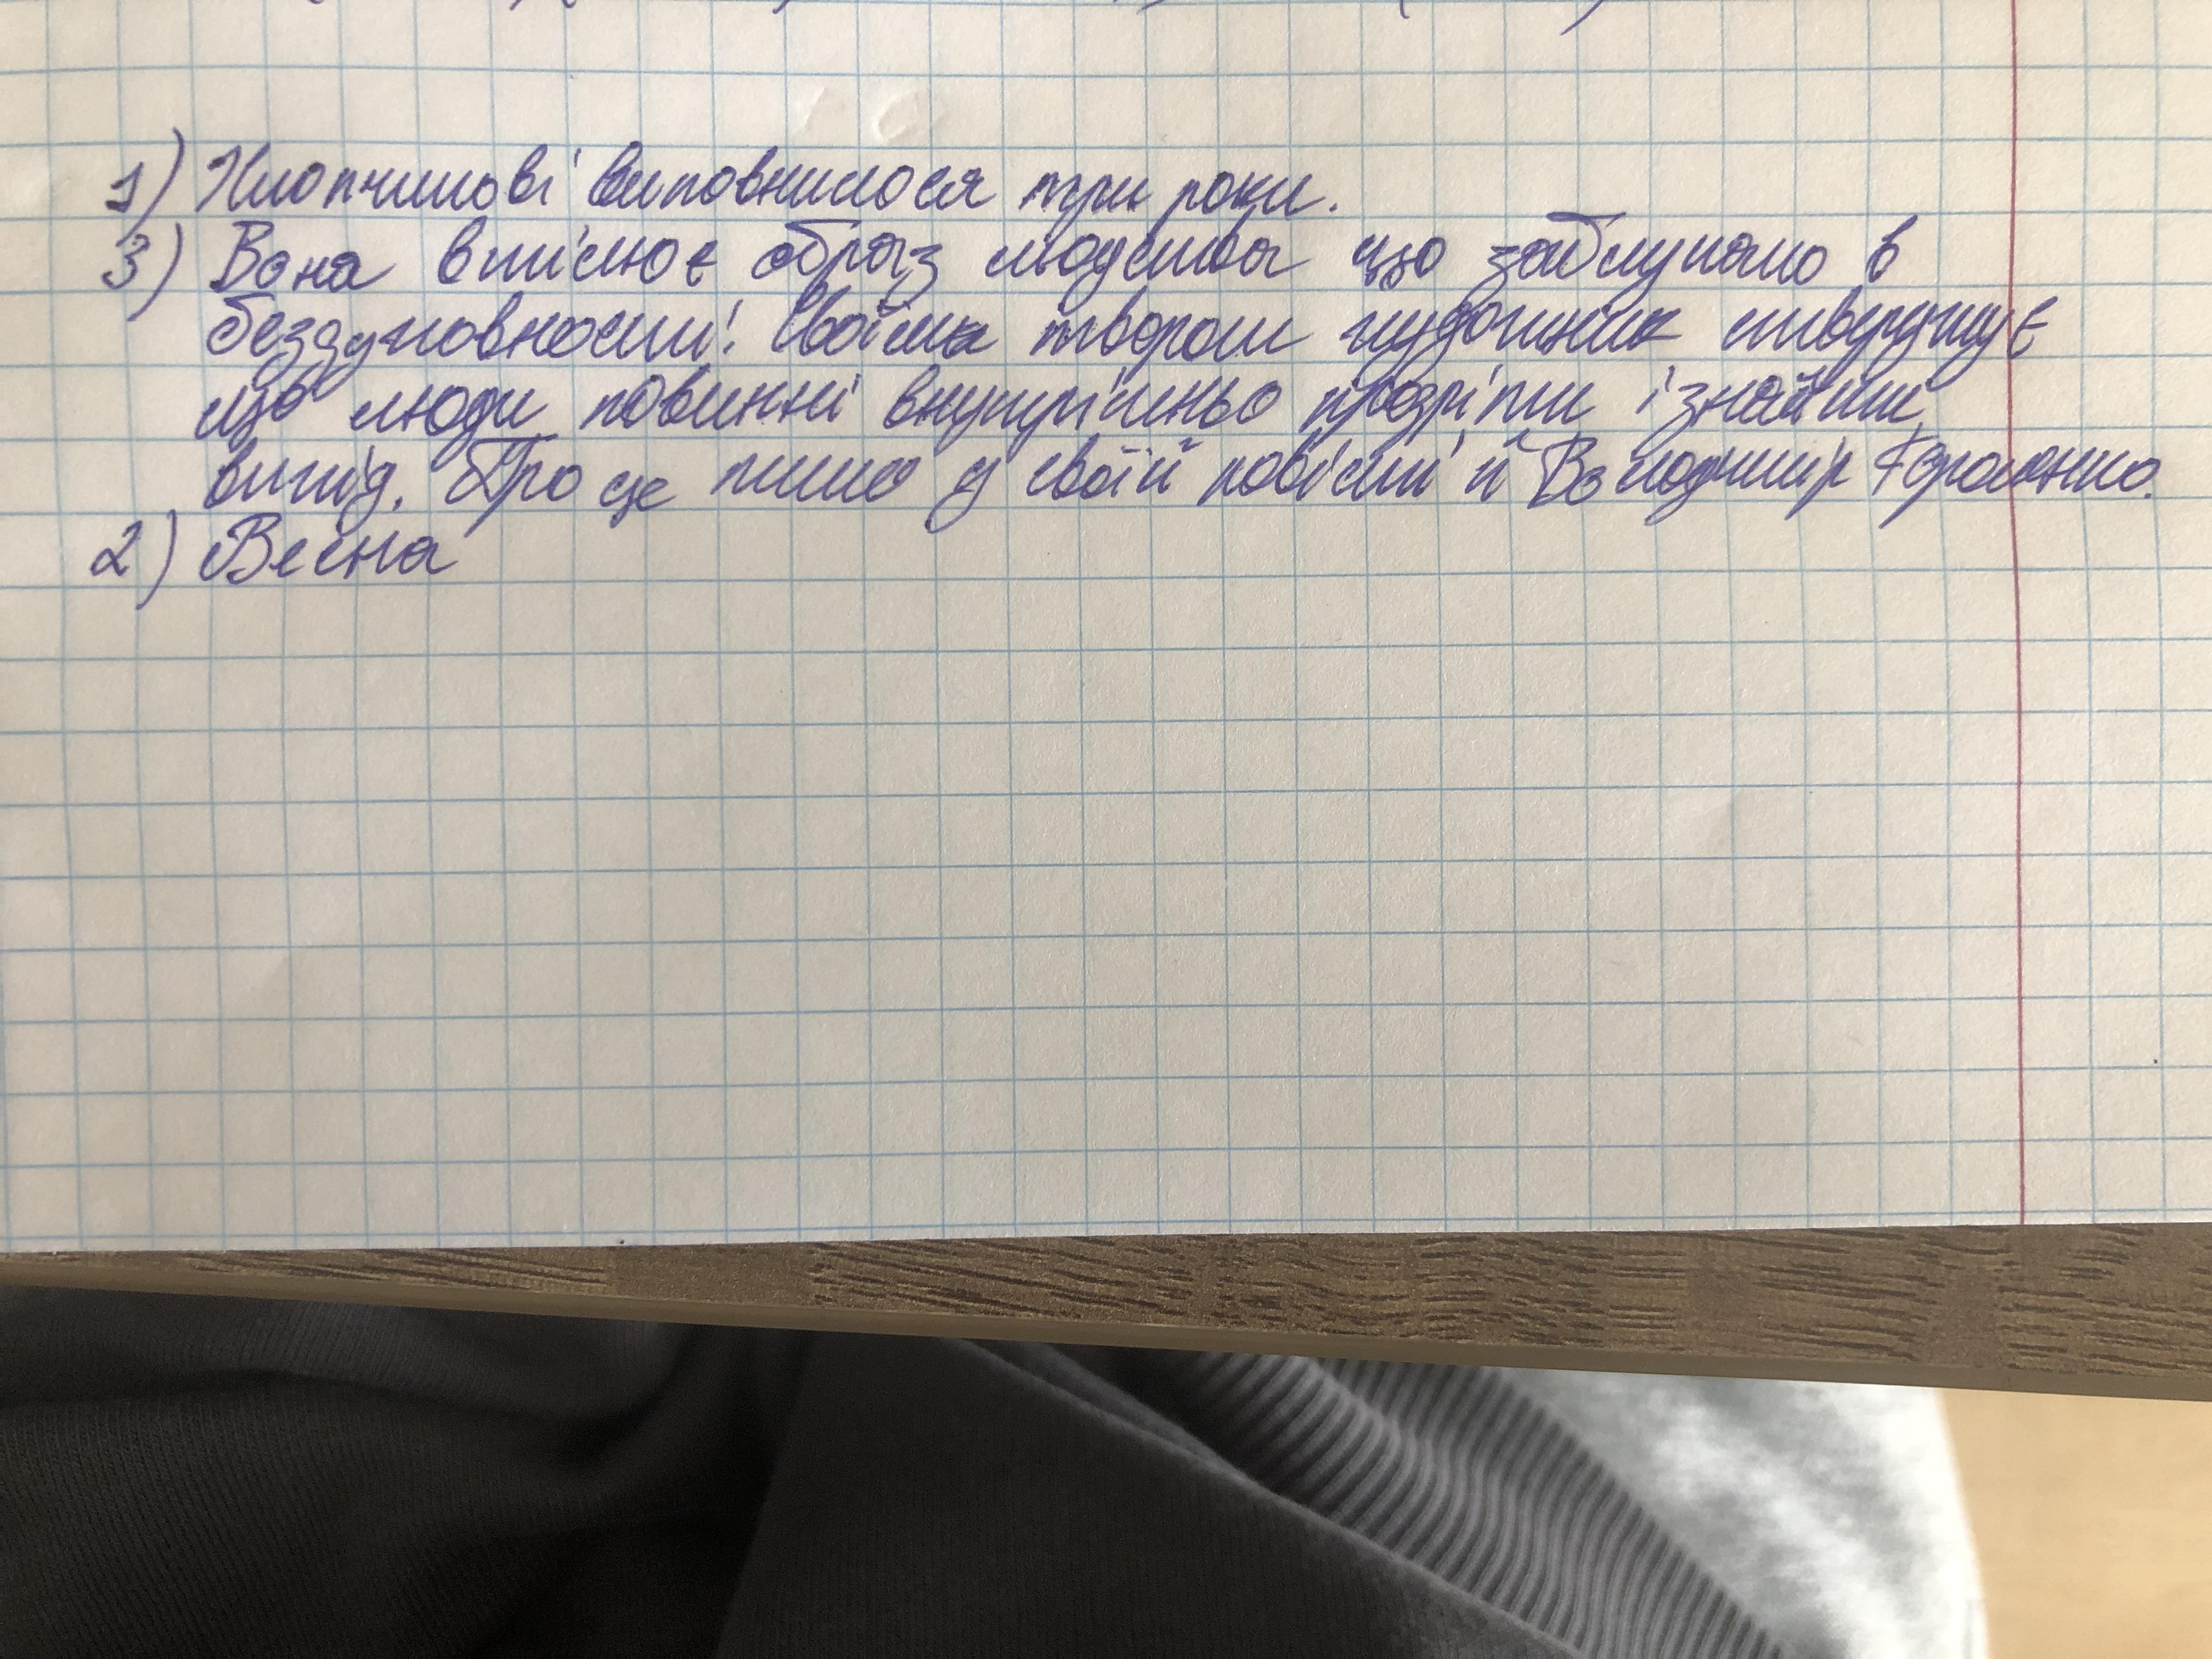 1) Хлопчикові виповнилося три роки.
3) Вона втілює образ людства що заблукало в
бездуховності. Своїм твором художник стверджує
що люди повинні внутрішньо прозріти і знайти
вихід. Про це пише у своїй повісті й Володимир Короленко.
2) Весна